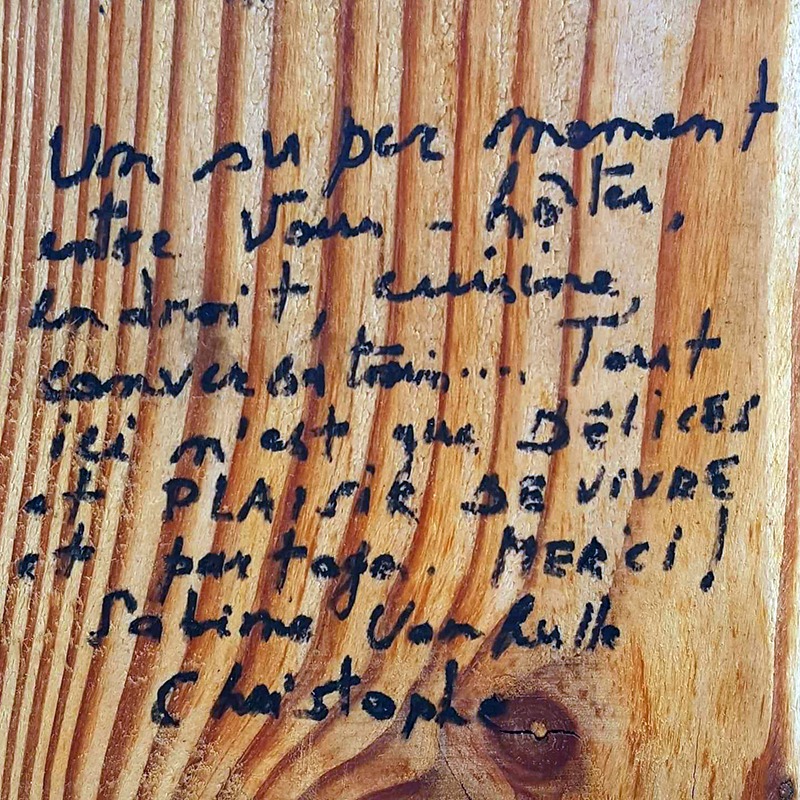 Un super moment
entre Vous - hôtes,
endroit, cuisine,
conversation.... Tout
ici n'est que DÉLICES
et PLAISIR DE VIVRE
et partage. MERCI!
Sabine Vanhulle
Christophe